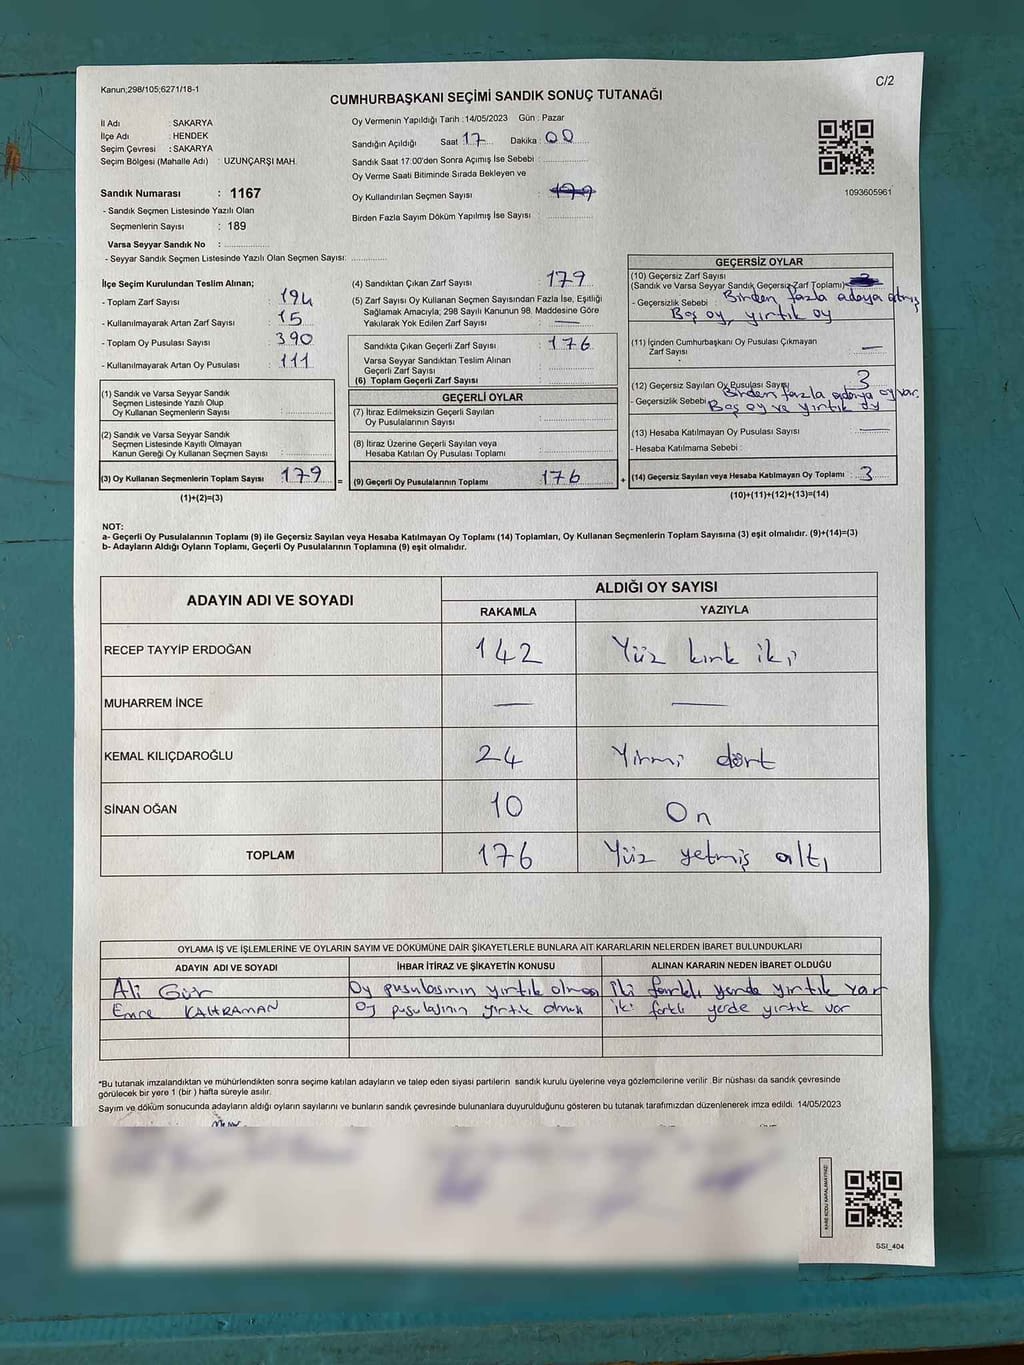 Kanun;298/105;6271/18-1
C/2
CUMHURBAŞKANI SEÇİMİ SANDIK SONUÇ TUTANAĞI
İl Adı : SAKARYA
İlçe Adı : HENDEK
Seçim Çevresi : SAKARYA
Seçim Bölgesi (Mahalle Adı) : UZUNÇARŞI MAH.
Sandık Numarası : 1167
- Sandık Seçmen Listesinde Yazılı Olan
Seçmenlerin Sayısı : 189
Varsa Seyyar Sandık No :
- Seyyar Sandık Seçmen Listesinde Yazılı Olan Seçmen Sayısı:
Oy Vermenin Yapıldığı Tarih :14/05/2023 Gün : Pazar
Sandığın Açıldığı Saat 17 Dakika : 00
Sandık Saat 17:00'den Sonra Açımış İse Sebebi :
Oy Verme Saati Bitiminde Sırada Bekleyen ve
Oy Kullandırılan Seçmen Sayısı :
Birden Fazla Sayım Döküm Yapılmış İse Sayısı :
1093605961
İlçe Seçim Kurulundan Teslim Alınan;
- Toplam Zarf Sayısı : 194
- Kullanılmayarak Artan Zarf Sayısı : 15
- Toplam Oy Pusulası Sayısı : 390
- Kullanılmayarak Artan Oy Pusulası : 111
(1) Sandık ve Varsa Seyyar Sandık
Seçmen Listesinde Yazılı Olup
Oy Kullanan Seçmenlerin Sayısı :
(2) Sandık ve Varsa Seyyar Sandık
Seçmen Listesinde Kayıtlı Olmayan
Kanun Gereği Oy Kullanan Seçmen Sayısı :
(3) Oy Kullanan Seçmenlerin Toplam Sayısı : 179
(1)+(2)=(3)
(4) Sandıktan Çıkan Zarf Sayısı : 179
(5) Zarf Sayısı Oy Kullanan Seçmen Sayısından Fazla İse, Eşitliği
Sağlamak Amacıyla; 298 Sayılı Kanunun 98. Maddesine Göre
Yakılarak Yok Edilen Zarf Sayısı : —
Sandıkta Çıkan Geçerli Zarf Sayısı : 176
Varsa Seyyar Sandıktan Teslim Alınan
Geçerli Zarf Sayısı :
(6) Toplam Geçerli Zarf Sayısı :
GEÇERLİ OYLAR
(7) İtiraz Edilmeksizin Geçerli Sayılan
Oy Pusulalarının Sayısı :
(8) İtiraz Üzerine Geçerli Sayılan veya
Hesaba Katılan Oy Pusulası Toplamı :
= (9) Geçerli Oy Pusulalarının Toplamı : 176
GEÇERSİZ OYLAR
(10) Geçersiz Zarf Sayısı
(Sandık ve Varsa Seyyar Sandık Geçersiz Zarf Toplamı):
- Geçersizlik Sebebi : Birden fazla adaya
Boş oy, yırtık oy
(11) İçinden Cumhurbaşkanı Oy Pusulası Çıkmayan
Zarf Sayısı : —
(12) Geçersiz Sayılan Oy Pusulası Sayısı : 3
- Geçersizlik Sebebi : Birden fazla adaya oy var.
Boş oy ve yırtık oy
(13) Hesaba Katılmayan Oy Pusulası Sayısı : —
- Hesaba Katılmama Sebebi :
+ (14) Geçersiz Sayılan veya Hesaba Katılmayan Oy Toplamı : 3
(10)+(11)+(12)+(13)=(14)
NOT:
a- Geçerli Oy Pusulalarının Toplamı (9) ile Geçersiz Sayılan veya Hesaba Katılmayan Oy Toplamı (14) Toplamları, Oy Kullanan Seçmenlerin Toplam Sayısına (3) eşit olmalıdır. (9)+(14)=(3)
b- Adayların Aldığı Oyların Toplamı, Geçerli Oy Pusulalarının Toplamına (9) eşit olmalıdır.
ADAYIN ADI VE SOYADI ALDIĞI OY SAYISI
RAKAMLA YAZIYLA
RECEP TAYYİP ERDOĞAN 142 Yüz kırk iki
MUHARREM İNCE — —
KEMAL KILIÇDAROĞLU 24 Yirmi dört
SİNAN OĞAN 10 On
TOPLAM 176 Yüz yetmiş altı
OYLAMA İŞ VE İŞLEMLERİNE VE OYLARIN SAYIM VE DÖKÜMÜNE DAİR ŞİKAYETLERLE BUNLARA AİT KARARLARIN NELERDEN İBARET BULUNDUKLARI
ADAYIN ADI VE SOYADI İHBAR İTİRAZ VE ŞİKAYETİN KONUSU ALINAN KARARIN NEDEN İBARET OLDUĞU
Ali Gür Oy pusulasının yırtık olması İki farklı yerde yırtık var
Emre KAHRAMAN Oy pusulasının yırtık olması iki farklı yerde yırtık var
*Bu tutanak imzalandıktan ve mühürlendikten sonra seçime katılan adayların ve talep eden siyasi partilerin sandık kurulu üyelerine veya gözlemcilerine verilir .Bir nüshası da sandık çevresinde
görülecek bir yere 1 (bir ) hafta süreyle asılır.
Sayım ve döküm sonucunda adayların aldığı oyların sayılarını ve bunların sandık çevresinde bulunanlara duyurulduğunu gösteren bu tutanak tarafımızdan düzenlenerek imza edildi. 14/05/2023
KARE KODU KARALAMAYINIZ!
SSI_404